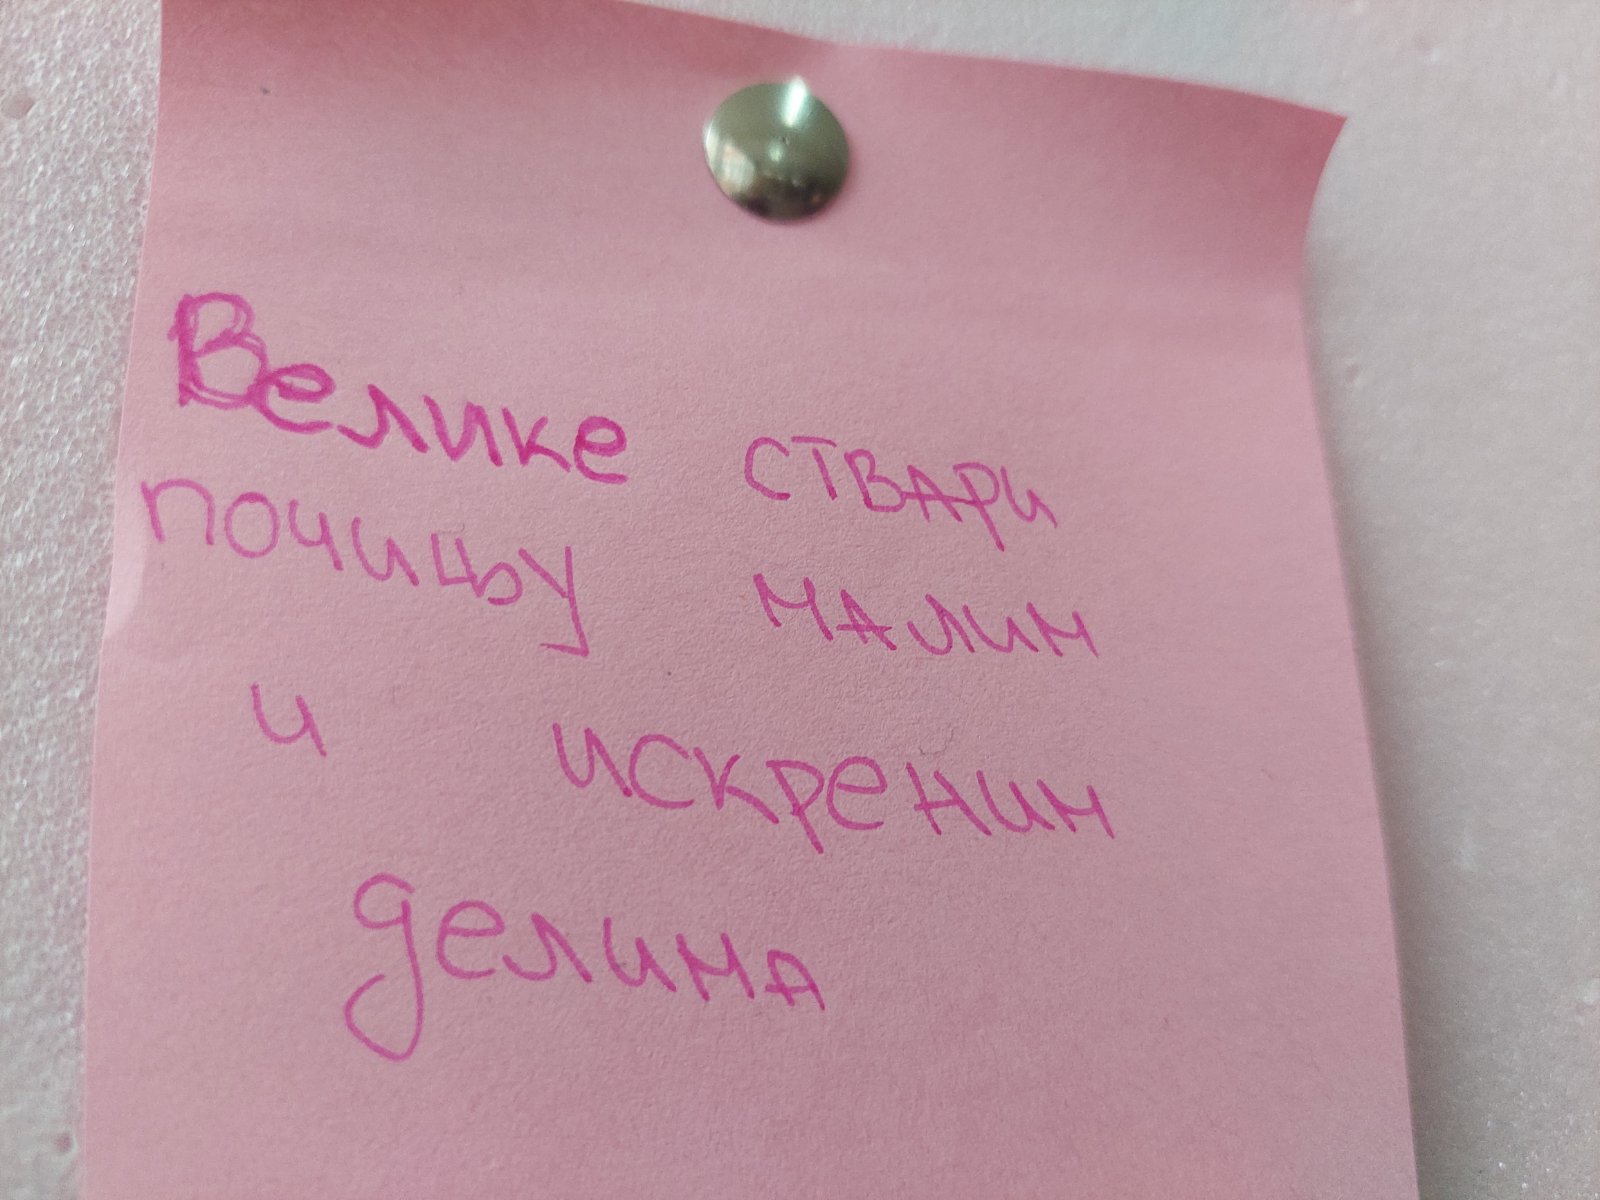 Велике ствари
почињу малим
и искреним
делима